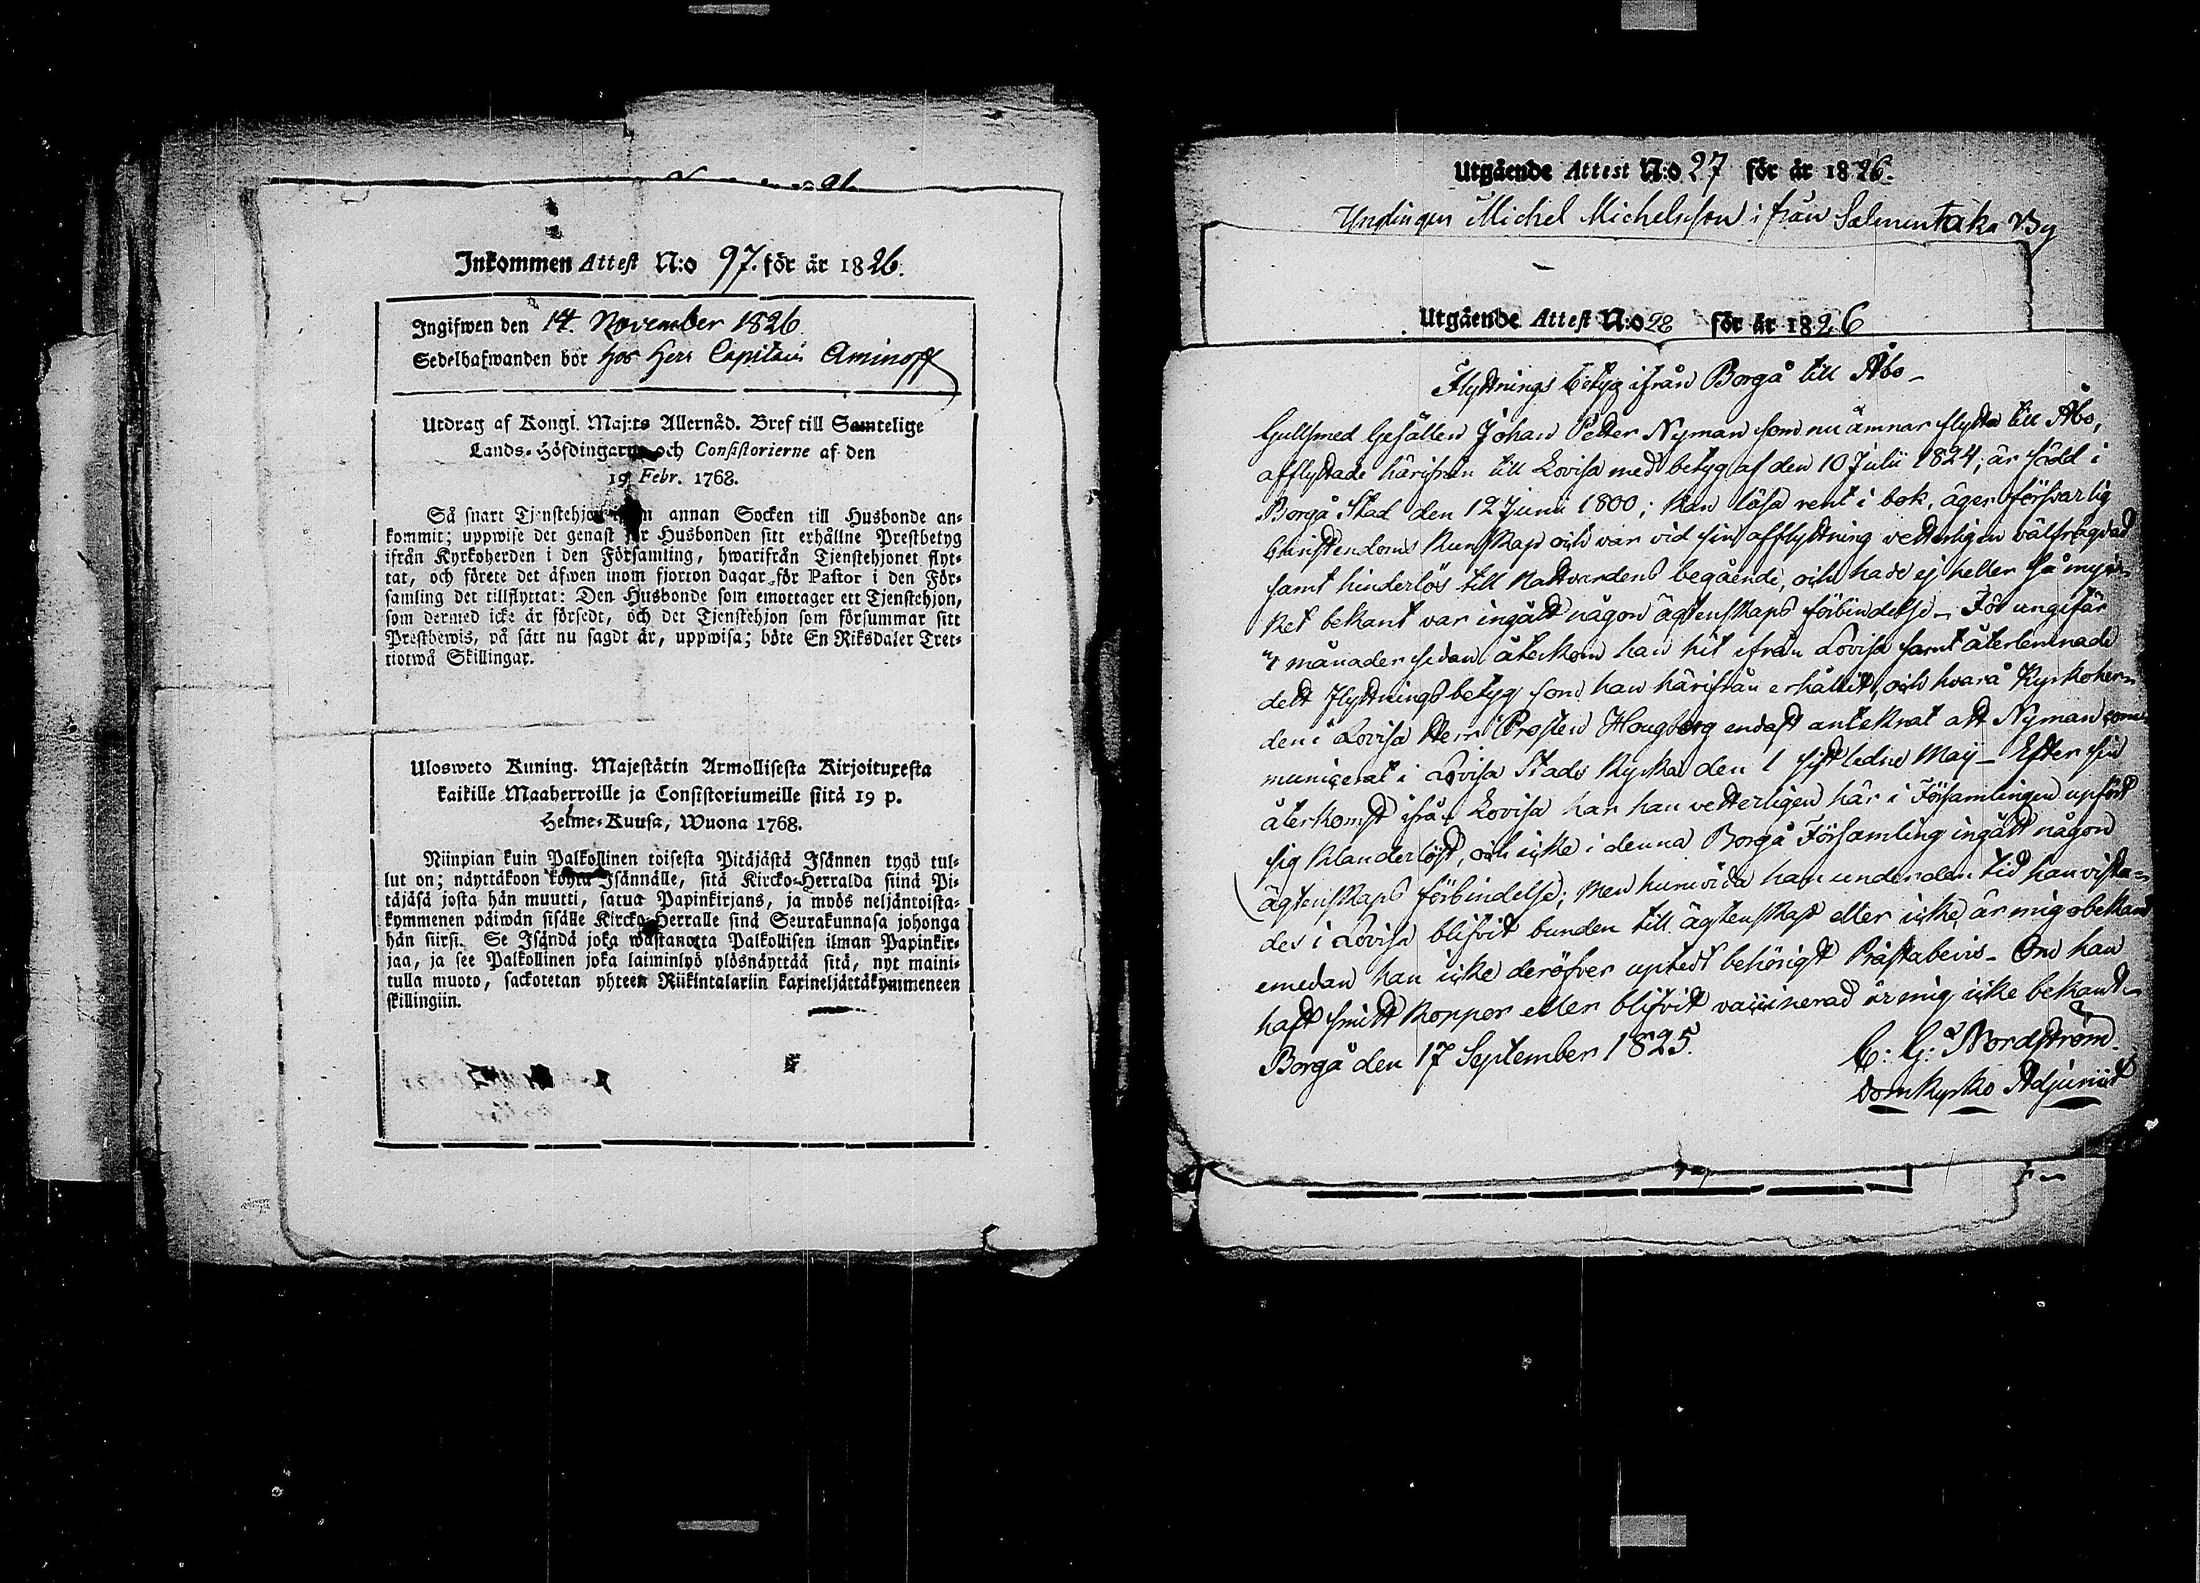 Inkommen Attest N:o 97. för år 1826.
Ingifwen den 14. November 1826.
Sedelhafwanden bor hos Herr Capitain Aminoff
Utdrag af Kongl. Maj:ts Allernåd. Bref till Samtelige
Lands-Höfdingarne och Consistorierne af den
19 Febr. 1768.
Så snart Tjenstehjon annan Socken till Husbonde an-
kommit; uppwise det genast för Husbonden sitt erhållne Prestbetyg
ifrån Kyrkoherden i den Församling, hwarifrån Tjenstehjonet flyt-
tat, och förete det äfwen inom fjorton dagar för Pastor i den För-
samling det tillflyttat: Den Husbonde som emottager ett Tjenstehjon,
som dermed icke är försedt, och det Tjenstehjon som försummar sitt
Prestbewis, på sätt nu sagdt är, uppwisa; böte En Riksdaler Tret-
tiotwå Skillingar.
Ulosweto Kuning. Majestätin Armollisesta Kirjoituxesta
kaikille Maaherroille ja Consistoriumeille siitä 19 p.
Helme-Kuusa, Wuona 1768.
Niinpian kuin Palkollinen toisesta Pitäjästä Isännen tygö tul-
lut on; näyttäkoon kohta Isännälle, sitä Kircko-Herralda siinä Pi-
täjäsä josta hän muutti, satua Papinkirjans, ja myös neljäntoista-
kymmenen päiwän sisälle Kircko-Herralle sinä Seurakunnasa johonga
hän siirsi. Se Isändä joka wastanotta Palkollisen ilman Papinkir-
jaa, ja see Palkollinen joka laiminlyö ylösnäyttää sitä, nyt maini-
tulla muoto, sackotetan yhteen Riikintalariin kaxineljättäkymmeneen
skillingiin.
Utgående Attest N:o 27 för år 1826.
Ynglingen Michel Michelsson i från Salmentaka By
Utgående Attest N:o 28 för år 1826
Flyttnings betyg ifrån Borgå till Åbo
Gullsmed Gesällen Johan Petter Nyman som nu ämnar flytta till Åbo,
afflyttade härifrån till Lovisa med betyg af den 10 Julii 1824; är född i
Borgå Stad den 12 Junii 1800; kan läsa rent i bok, äger försvarlig
Christendoms Kunskap och var vid sin afflyttning vetterligen välfrägdad
samt hinderlös till Nattvardens begående, och hade ej heller så myc-
ket bekant var ingått någon ägtenskaps förbindelse. För ungefär
4 månader sedan återkom han hit ifrån Lovisa samt återlemnade
dett flyttningsbetyg som han härifrån erhållit, och hvarå Kyrkoher-
den i Lovisa Herr Prosten Hougberg endast anteknat att Nyman com-
municerat i Lovisa Stads Kyrka den 1 sistledne Maij. Efter sin
återkomst ifrån Lovisa har han vetterligen här i Församlingen upfört
sig klanderlöst, och icke i denna Borgå Församling ingått någon
ägtenskaps förbindelse; Men huruvida han under den tid han vista-
des i Lovisa blifvit bunden till ägtenskap eller icke, är mig obekant
emedan han icke deröfver uptedt behörigt Prästabevis. Om han
haft smitt koppor eller blifvit vaccinerad är mig icke bekant.
Borgå den 17 September 1825.
C: G: Nordström
Domkyrko Adjunct